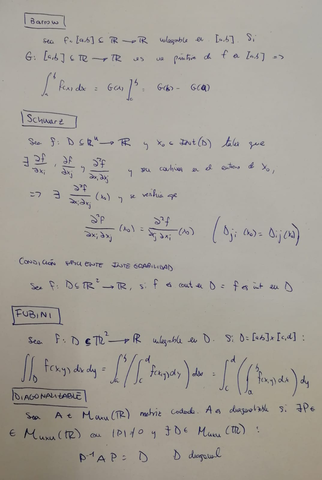 Barrow
Sea f: [a,b] ⊆ ℝ → ℝ integrable en [a,b] Si
G: [a,b] ⊆ ℝ → ℝ es una primitiva de f en [a,b] =>
∫_a^b f(x) dx = G(x) ]_a^b = G(b) - G(a)
Schwarz
Sea f: D ⊆ ℝⁿ → ℝ y x₀ ∈ Int(D) tales que
∃ ∂f/∂xᵢ , ∂f/∂xⱼ y ∂²f/∂xᵢ∂xⱼ y son continuas en el entorno de x₀,
=> ∃ ∂²f/∂xⱼ∂xᵢ (x₀) y se verifica que
∂²f/∂xᵢ∂xⱼ (x₀) = ∂²f/∂xⱼ∂xᵢ (x₀) ( Dⱼᵢ (x₀) = Dᵢⱼ(x₀) )
CONDICIÓN SUFICIENTE INTEGRABILIDAD
Sea f: D ⊆ ℝ² → ℝ, si f es cont en D => f es int en D
FUBINI
Sea f: D ⊆ ℝ² → ℝ integrable en D. Si D = [a,b] x [c,d] :
∬_D f(x,y) dx dy = ∫_a^b ( ∫_c^d f(x,y) dy ) dx = ∫_c^d ( ∫_a^b f(x,y) dx ) dy
DIAGONALIZABLE
Sea A ∈ Mnxn (ℝ) matriz cuadrada. A es diagonalizable si ∃ P ∈
∈ Mnxn (ℝ) con |P| ≠ 0 y ∃ D ∈ Mnxn (ℝ) :
P⁻¹ A P = D D diagonal